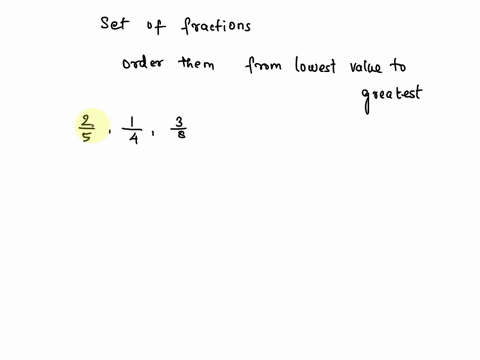 Set of fractions
order them from lowest value to
greatest
2/5, 1/4, 3/8